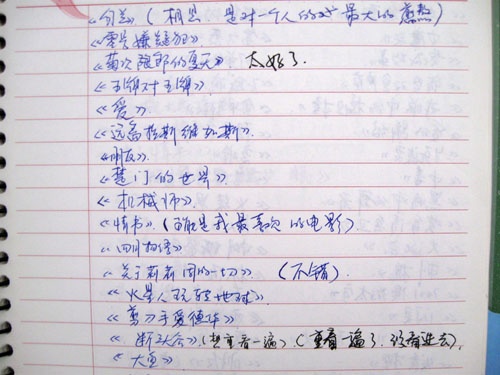 《》(相思 是对一个人的 最大的煎熬)
《零号嫌疑犯》
《菊次郎的夏天》 太好了.
《王牌对王牌》
《爱》
《远离拉斯维加斯》
《朋友》
《楚门的世界》
《机械师》
《情书》(可能是我最喜欢的电影)
《四月物语》
《关于莉莉周的一切》 (不错)
《火星人玩转地球》
《剪刀手爱德华》
《断头谷》(想重看一遍)(重看一遍了,没看进去)
《大鱼》